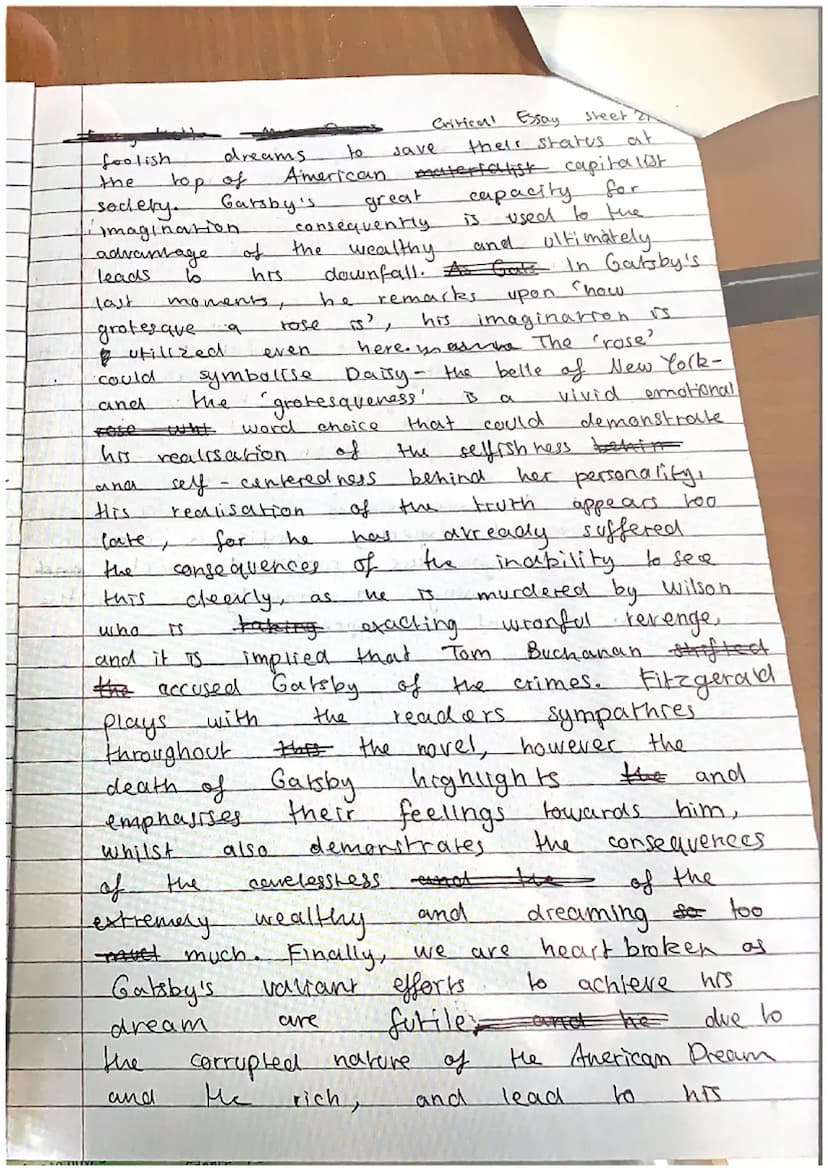 Critical Essay sheet 2
foolish dreams to save their status at
the top of American materialist capitalist
society. Gatsby's great capacity for
imagination consequently is used to the
advantage of the wealthy and ultimately
leads to his downfall. As Gats In Gatsby's
last moments, he remarks upon 'how
grotesque a rose is', his imagination is
utilized even here. The 'rose'
could symbolise Daisy - the belle of New York -
and the 'grotesqueness' is a vivid emotional
rose whi word choice that could demonstrate
his realisation of the selfishness behin
and self-centeredness behind her personality.
His realisation of the truth appears too
late, for he has already suffered
the consequences of the inability to see
this cleerly, as he is murdered by Wilson
who is taking exacting wronful revenge,
and it is implied that Tom Buchanan shifted
the accused Gatsby of the crimes. Fitzgerald
plays with the readers sympathies
throughout this the novel, however the
death of Gatsby highlights the and
emphasises their feelings towards him,
whilst also demonstrates the consequences
of the carelessness and the of the
extremely wealthy and dreaming so too
much. Finally, we are heart broken as
Gatsby's valiant efforts to achieve his
dream are futile, and he due to
the corrupted nature of the American Dream
and the rich, and lead to his